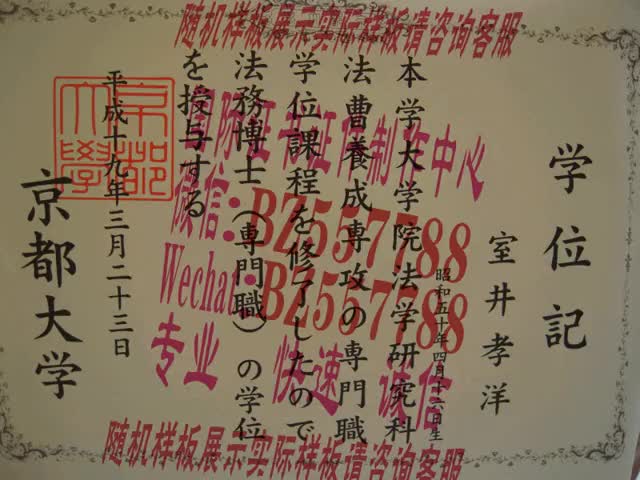 随机样板展示实际样板请咨询客服
学位記
室井孝洋
昭和五十年四月十六日生
本学大学院法学研究科
法曹養成専攻の専門職
学位課程を修了したので
法務博士（専門職）の学位
を授与する
平成十九年三月二十三日
京都大学
京都大學
国际证书证件制作中心
微信:BZ557788
Wechat:BZ557788
专业 快速 诚信
随机样板展示实际样板请咨询客服